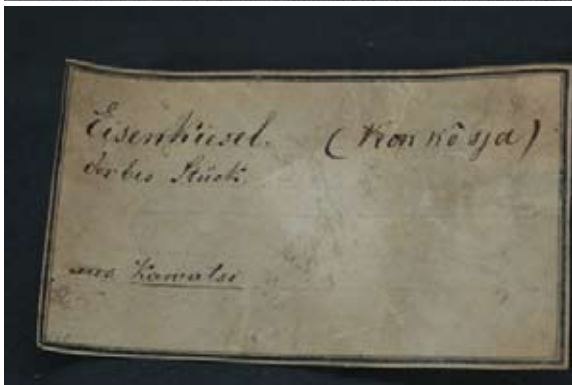 Eisenkiesel. (Konkôsja)
derbes Stück.
aus Kawatse